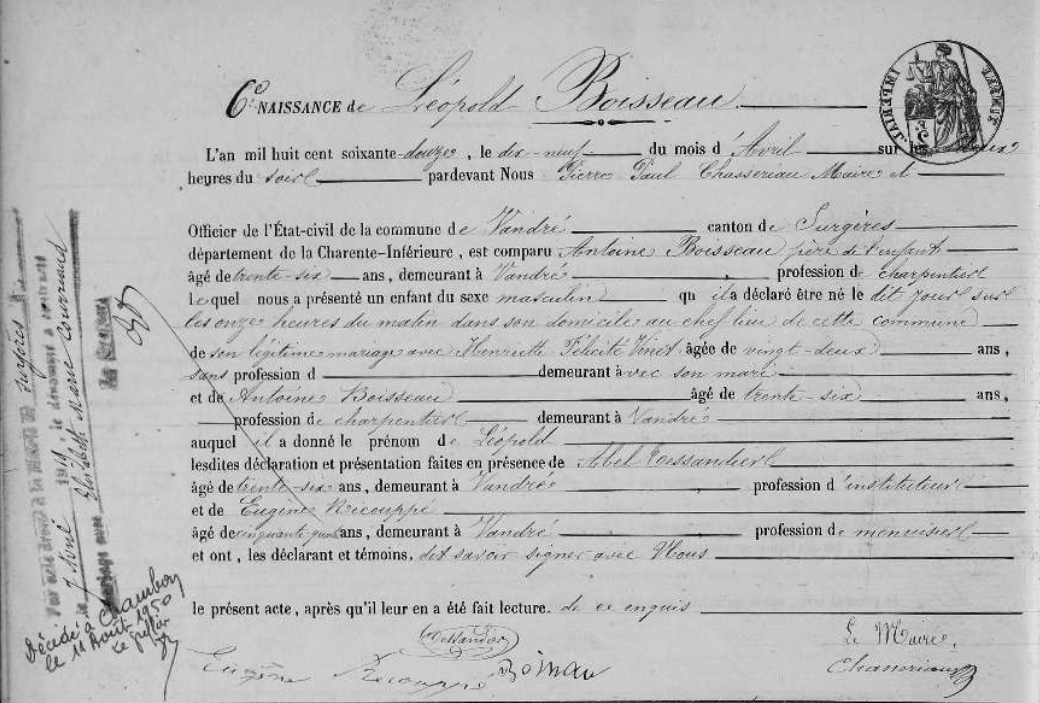 6e NAISSANCE de Léopold Boisseau
L'an mil huit cent soixante-douze, le dix-neuf du mois d'Avril sur les
heures du soir pardevant Nous Pierre Paul Chasseriau Maire et
Officier de l'État-civil de la commune de Vandré canton de Surgères
département de la Charente-Inférieure, est comparu Antoine Boisseau père de l'enfant
âgé de trente-six ans, demeurant à Vandré, profession de charpentier
lequel nous a présenté un enfant du sexe masculin qu'il a déclaré être né le dit jour sur
les onze heures du matin dans son domicile au chef lieu de cette commune
de son légitime mariage avec Henriette Félicité Vinet âgée de vingt-deux ans,
sans profession d demeurant avec son mari
et de Antoine Boisseau âgé de trente-six ans,
profession de charpentier demeurant à Vandré
auquel il a donné le prénom de Léopold
lesdites déclaration et présentation faites en présence de Abel Tessandier
âgé de trente-six ans, demeurant à Vandré profession d'instituteur
et de Eugène Récouppé
âgé de cinquante ans, demeurant à Vandré profession de menuisier
et ont, les déclarant et témoins, dit savoir signer avec Nous
le présent acte, après qu'il leur en a été fait lecture. de ce enquis
Tessandier
Le Maire,
Eugène Récouppé
Chasseriau
Par acte dressé à la Mairie de Surgères
le 7 Avril 1919, le dénommé a contracté
Mariage avec Elisabeth Marie
le Greffier
Décédé à Chambon
le 11 Août 1950
Le greffier